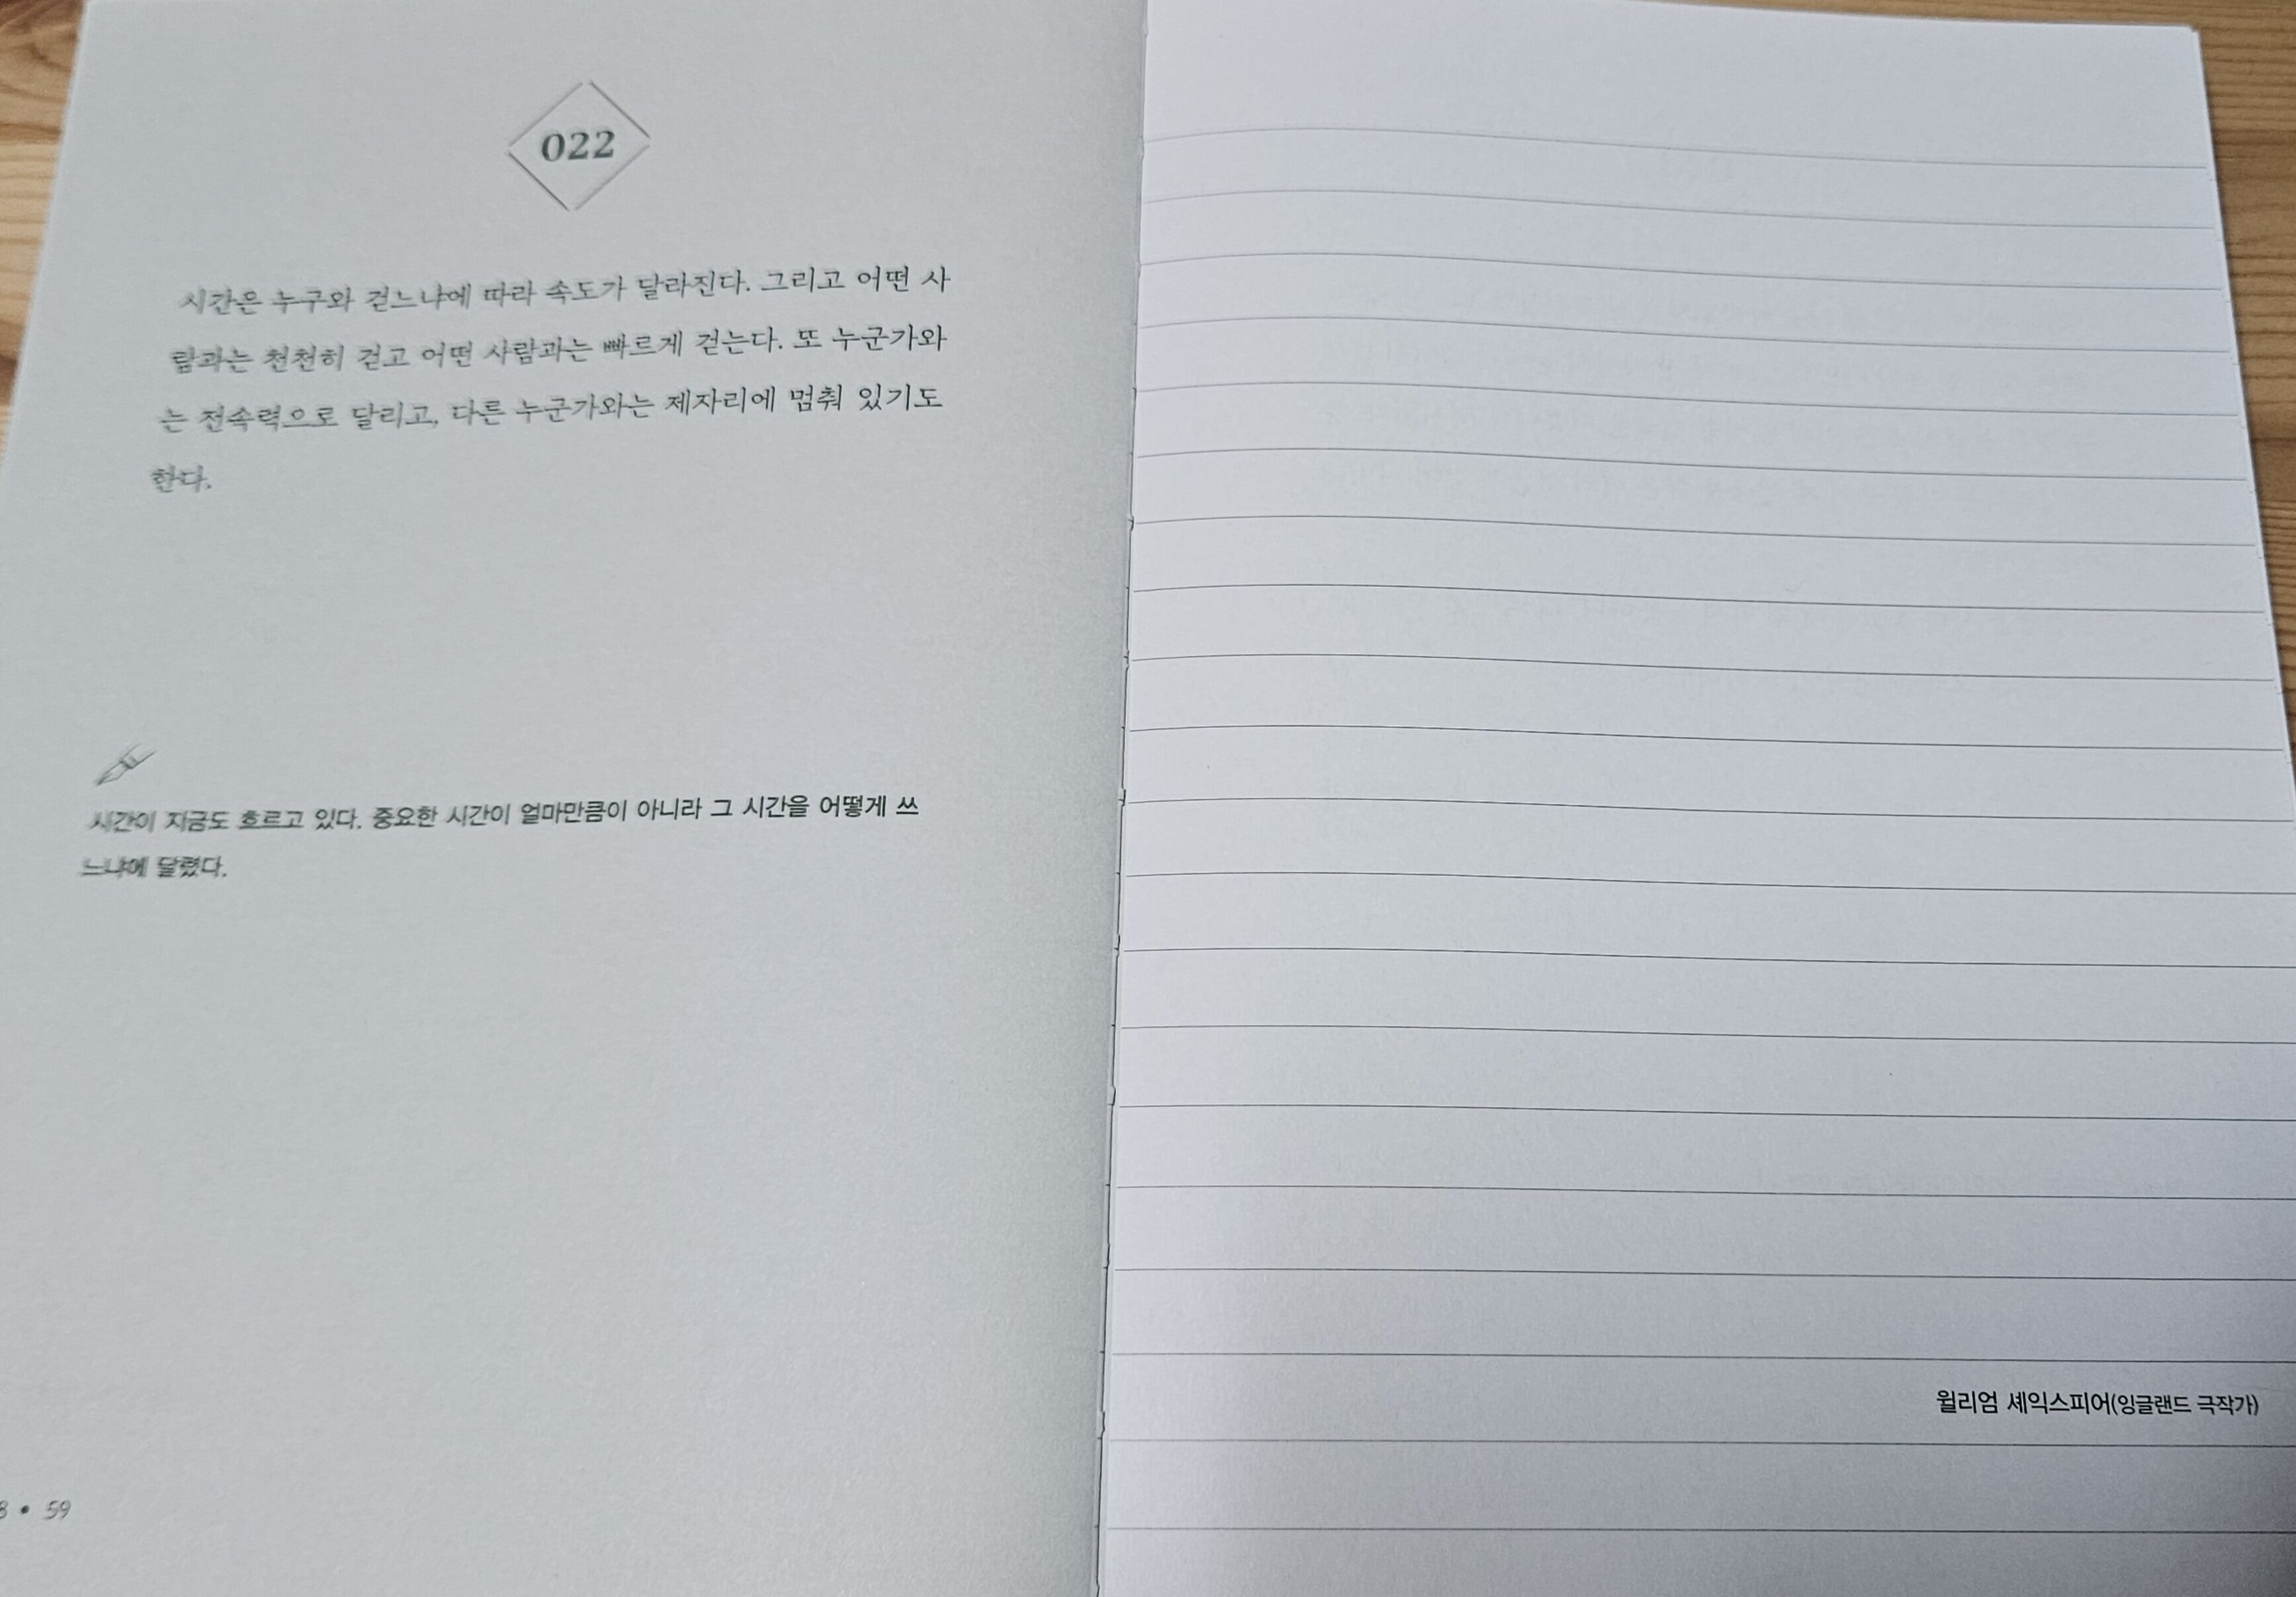 022
시간은 누구와 걷느냐에 따라 속도가 달라진다. 그리고 어떤 사
람과는 천천히 걷고 어떤 사람과는 빠르게 걷는다. 또 누군가와
는 전속력으로 달리고, 다른 누군가와는 제자리에 멈춰 있기도
한다.
시간이 지금도 흐르고 있다. 중요한 시간이 얼마만큼이 아니라 그 시간을 어떻게 쓰
느냐에 달렸다.
8 • 59
윌리엄 셰익스피어(잉글랜드 극작가)